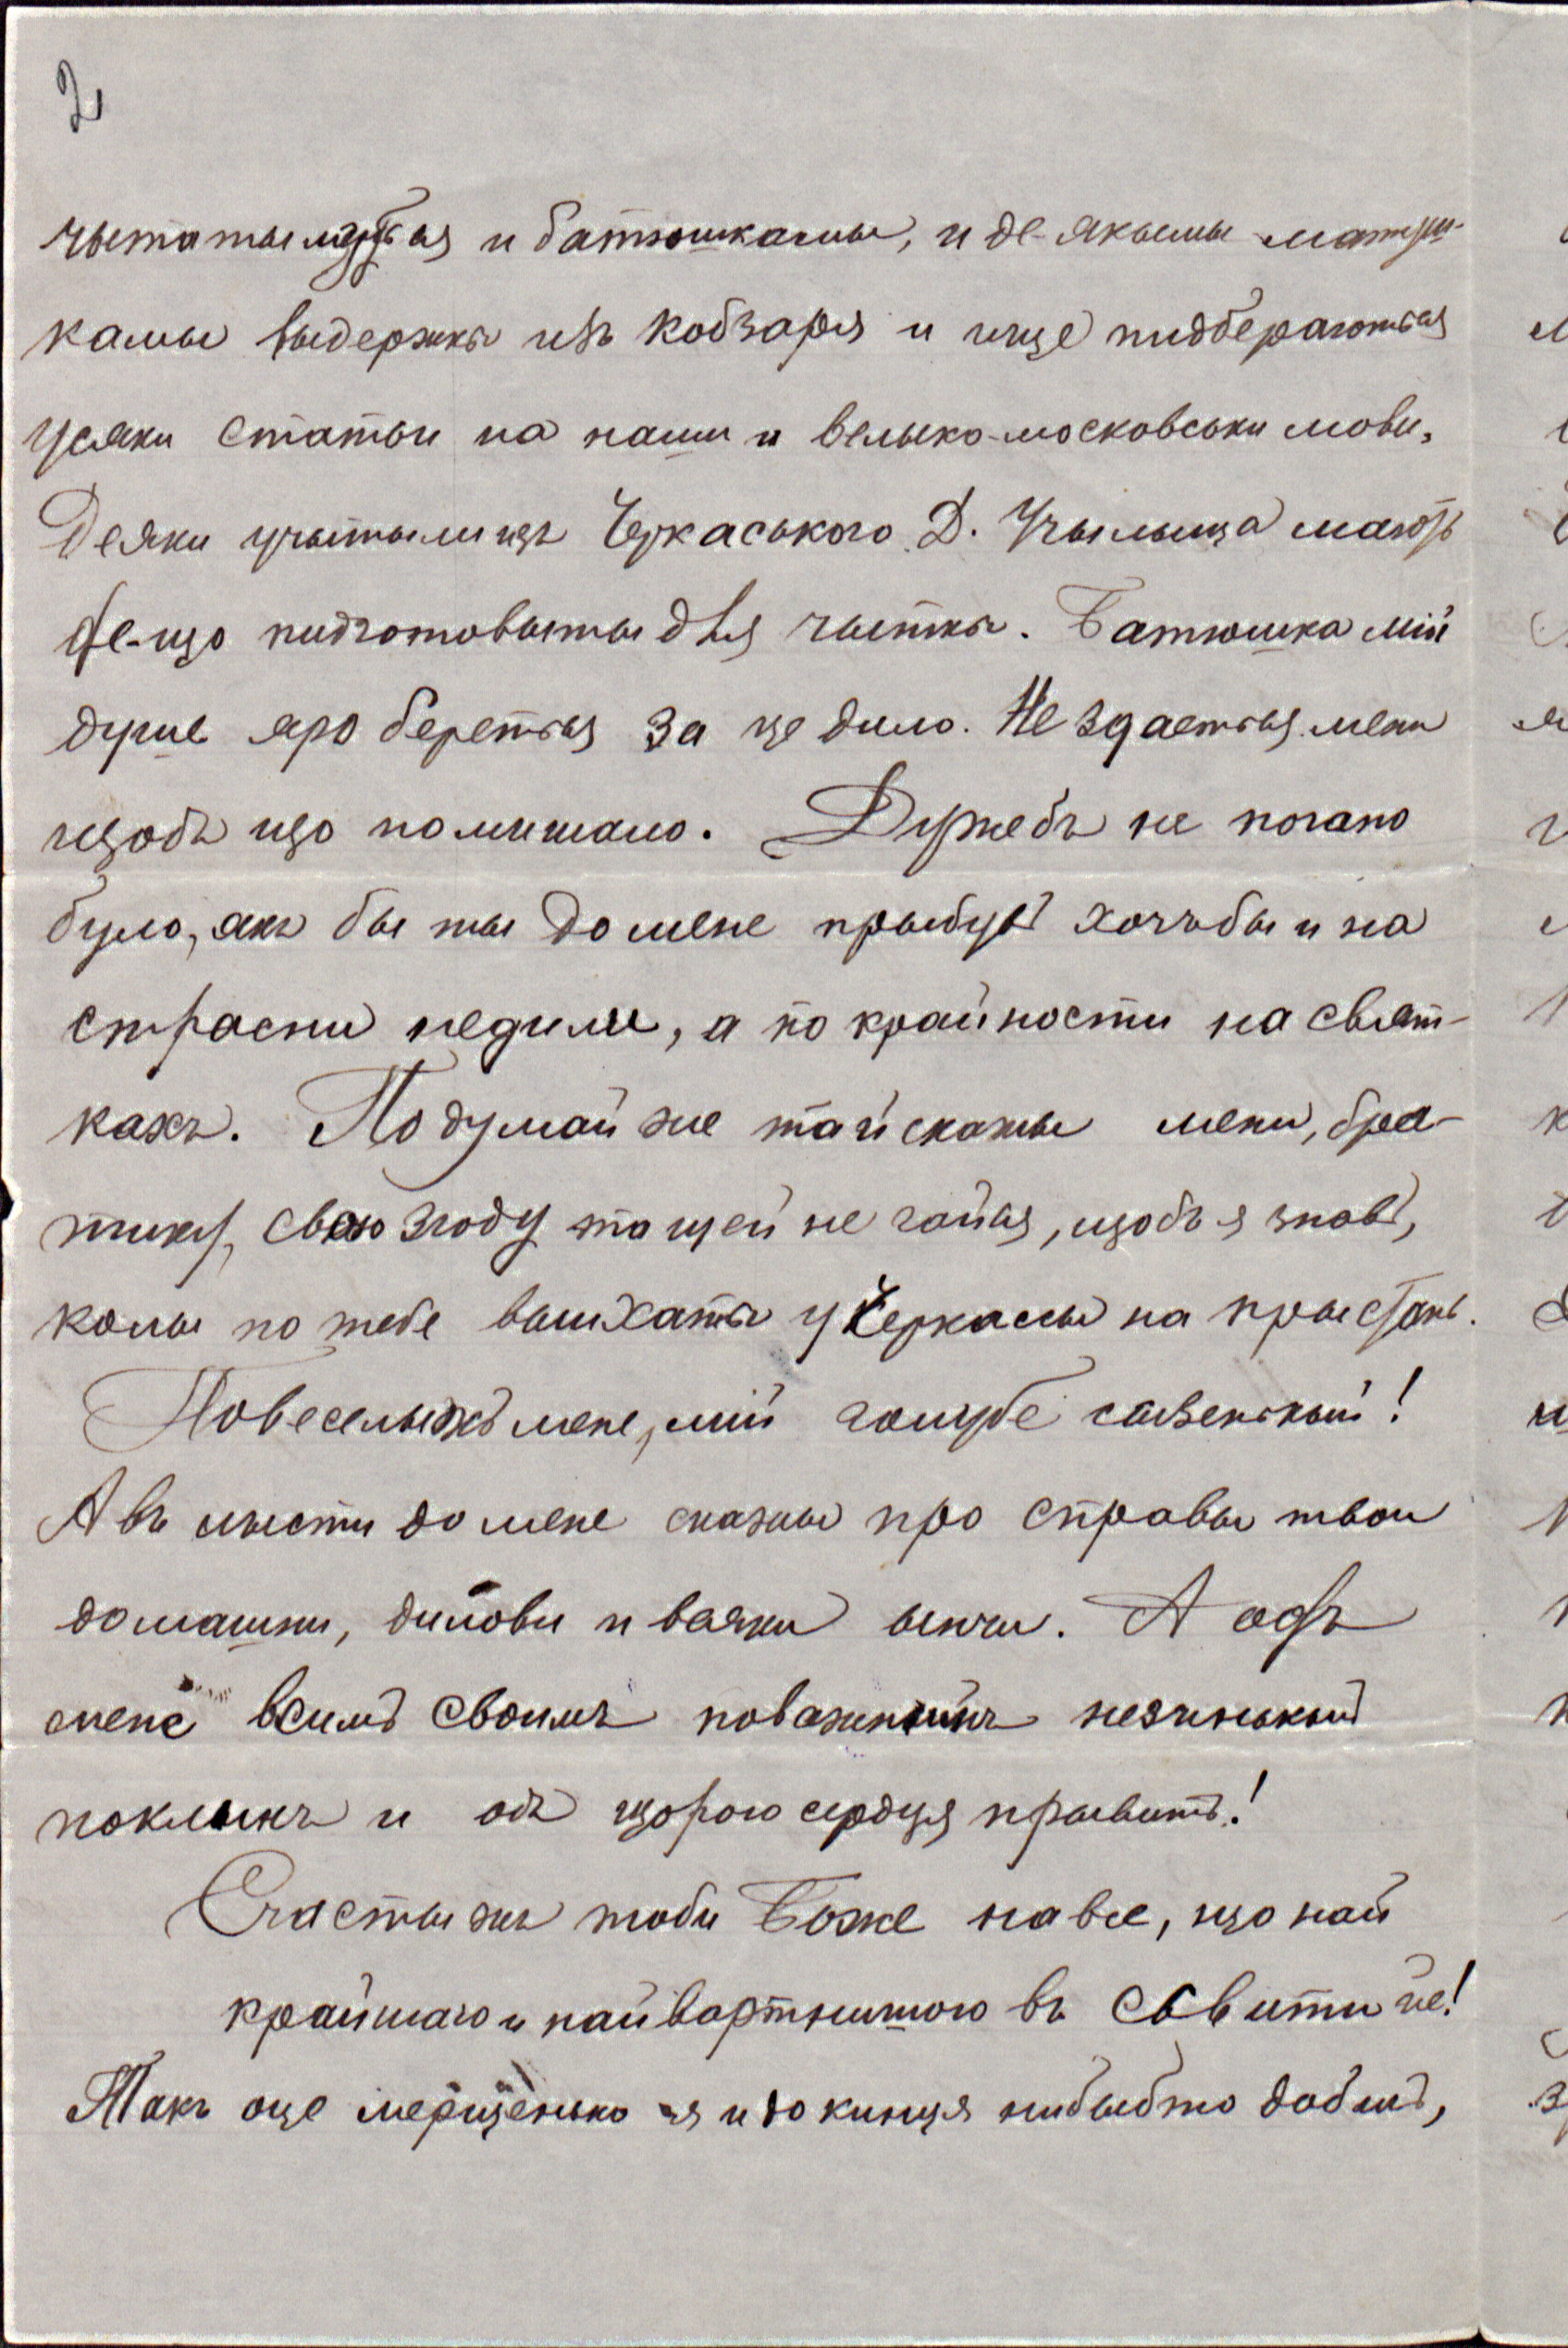 2
чытатымуться и батюшкамы, и де-якымы матуш-
камы выдержкы изъ Кобзаря и ище пидбераються
усяки статьи на наши и велыко-московськи мови.
Деяки учытыли изъ Черкаського Д. Учылыща мають
де-що пидготовыты для чыткы. Батюшка мій
дуже яро береться за це дило. Не здаеться мени
щобъ що помишало. Дужебъ не погано
було, якъ бы ты до мене прыбувъ хочъбы и на
страсни недили, а по крайности на свят-
кахъ. Подумай же та й скажы мени, бра-
тику, свою згоду та цей не гайся, щобъ я знавъ,
колы по тебе выихаты у Черкассы на прыстань.
Повеселыжъ мене, мій голубе сызенькый!
А въ лысти до мене скажы про справы твои
домашни, дилови и всяки ынчи. А одъ
мене всимъ своимъ поважнымъ незинькый
поклынъ и одъ щорого сердця прывитъ!
Счасты жъ тоби Боже на все, що най
крайшаго и найвартнишого въ свити е!
Такъ оце мерщенько я и до кинця нибыбто добигъ,